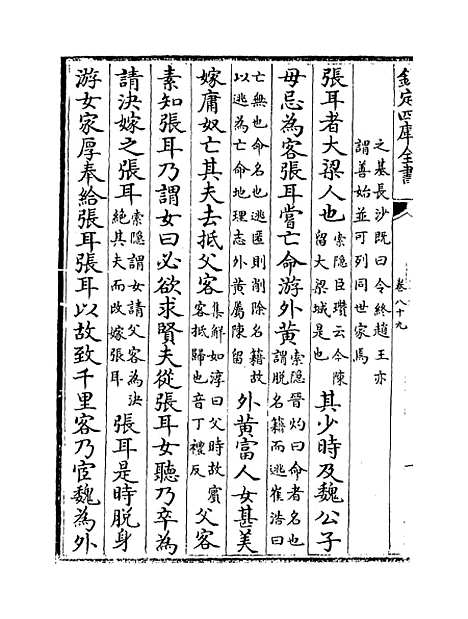 欽定四庫全書
卷八十九
之基長沙既曰令終趙王亦
謂善始並可列同世家焉
張耳者大梁人也
索隱臣瓚云今陳
留大梁城是也
其少時及魏公子
毋忌為客張耳嘗亡命游外黃
索隱晉灼曰命者名也
謂脫名籍而逃崔浩曰
亡無也命名也逃匿則削除名籍故
以逃為亡命地理志外黃屬陳留
外黃富人女甚美
嫁庸奴亡其夫去抵父客
集解如淳曰父時故賓
客抵歸也音丁禮反
父客
素知張耳乃謂女曰必欲求賢夫從張耳女聽乃卒為
請決嫁之張耳
索隱謂女請父客為決
絕其夫而改嫁張耳
張耳是時脫身
游女家厚奉給張耳張耳以故致千里客乃宦魏為外